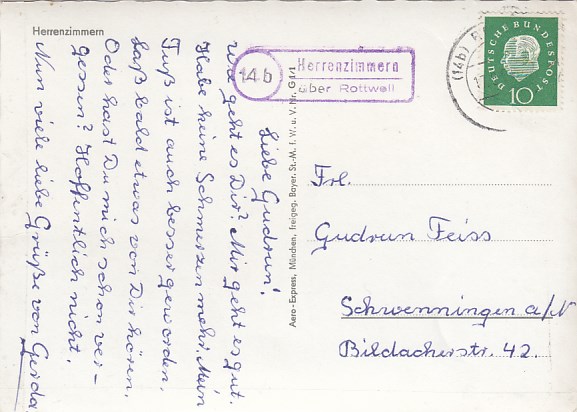 Herrenzimmern
14b
Herrenzimmern
über Rottweil
(14b) R
DEUTSCHE BUNDESPOST
10
Aero-Express, München, freigeg. Bayer. St.-M. f. W. u. V. Nr. G4/1
Liebe Gudrun!
wie geht es Dir? Mir geht es gut.
Habe keine Schmerzen mehr. Mein
Fuß ist auch besser geworden.
Laß bald etwas von Dir hören.
Oder hast Du mich schon ver-
gessen? Hoffentlich nicht.
Nun viele liebe Grüße von Gerda
Frl.
Gudrun Feiss
Schwenningen a/N
Bildacherstr. 42.